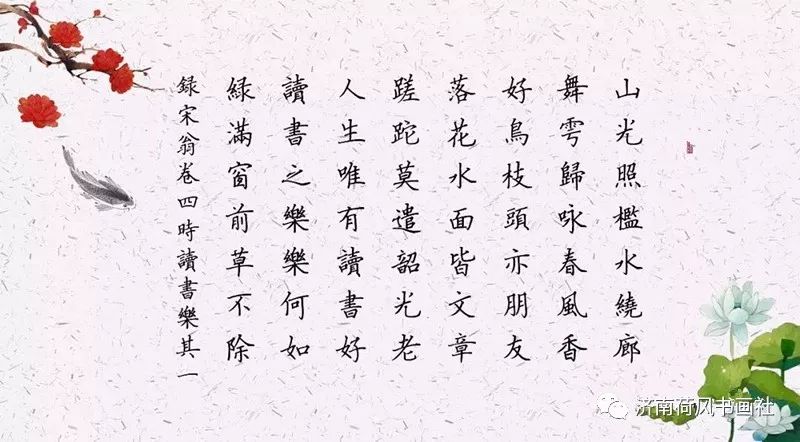 山光照檻水繞廊
舞雩歸咏春風香
好鳥枝頭亦朋友
落花水面皆文章
蹉跎莫遣韶光老
人生唯有讀書好
讀書之樂樂何如
緑滿窗前草不除
録宋翁卷四時讀書樂其一
济南荷风书画社